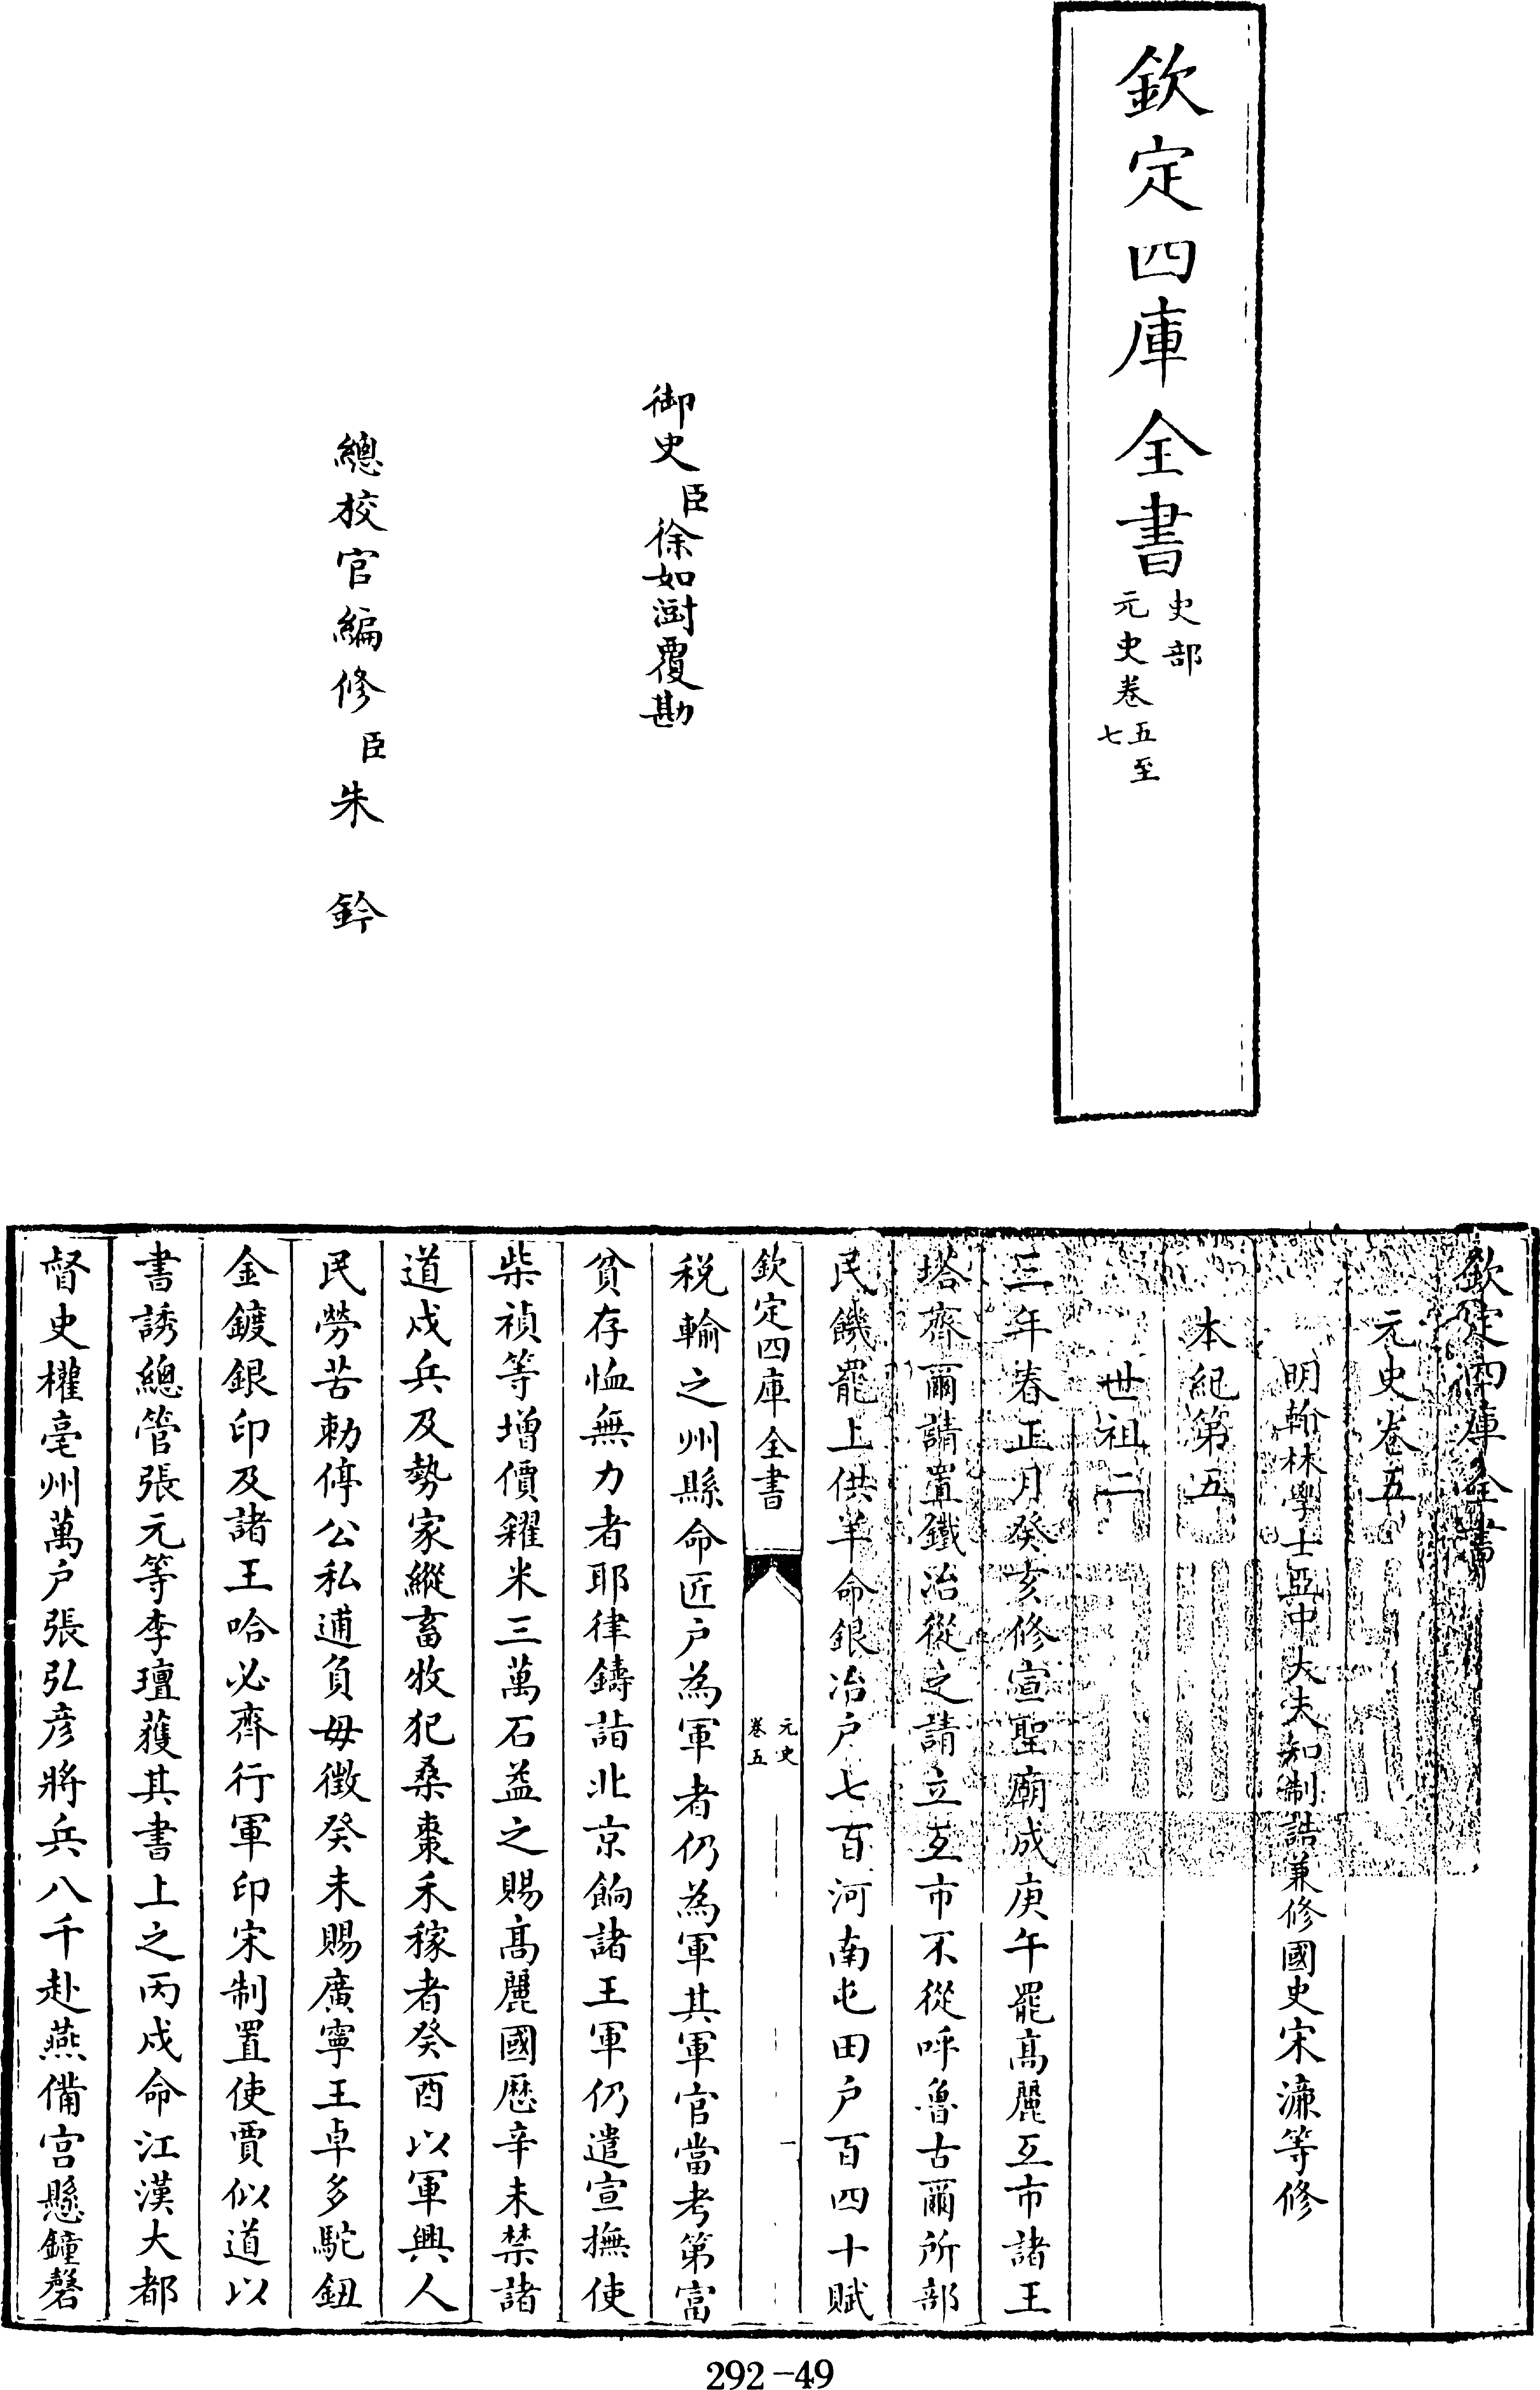 欽定四庫全書
史部
元史卷
五至
七
御史臣徐如澍覆勘
總校官編修臣朱 鈐
欽定四庫全書
元史卷五
明翰林學士亞中大夫知制誥兼修國史宋濂等修
本紀第五
世祖二
三年春正月癸亥修宣聖廟成庚午罷髙麗互市諸王
塔齊爾請置鐵冶從之請立互市不從呼魯古爾所部
民饑罷上供羊命銀冶户七百河南屯田户百四十賦
欽定四庫全書
元史
卷五
一
税輸之州縣命匠户為軍者仍為軍其軍官當考第富
貧存恤無力者耶律鑄詣北京餉諸王軍仍遣宣撫使
柴禎等增價糴米三萬石益之賜髙麗國歴辛未禁諸
道戍兵及勢家縱畜牧犯桑棗禾稼者癸酉以軍興人
民勞苦勅停公私逋負毋徴癸未賜廣寧王卓多駝鈕
金鍍銀印及諸王哈必齊行軍印宋制置使賈似道以
書誘總管張元等李璮獲其書上之丙戌命江漢大都
督史權亳州萬户張弘彦將兵八千赴燕備宫懸鐘磬
292-49